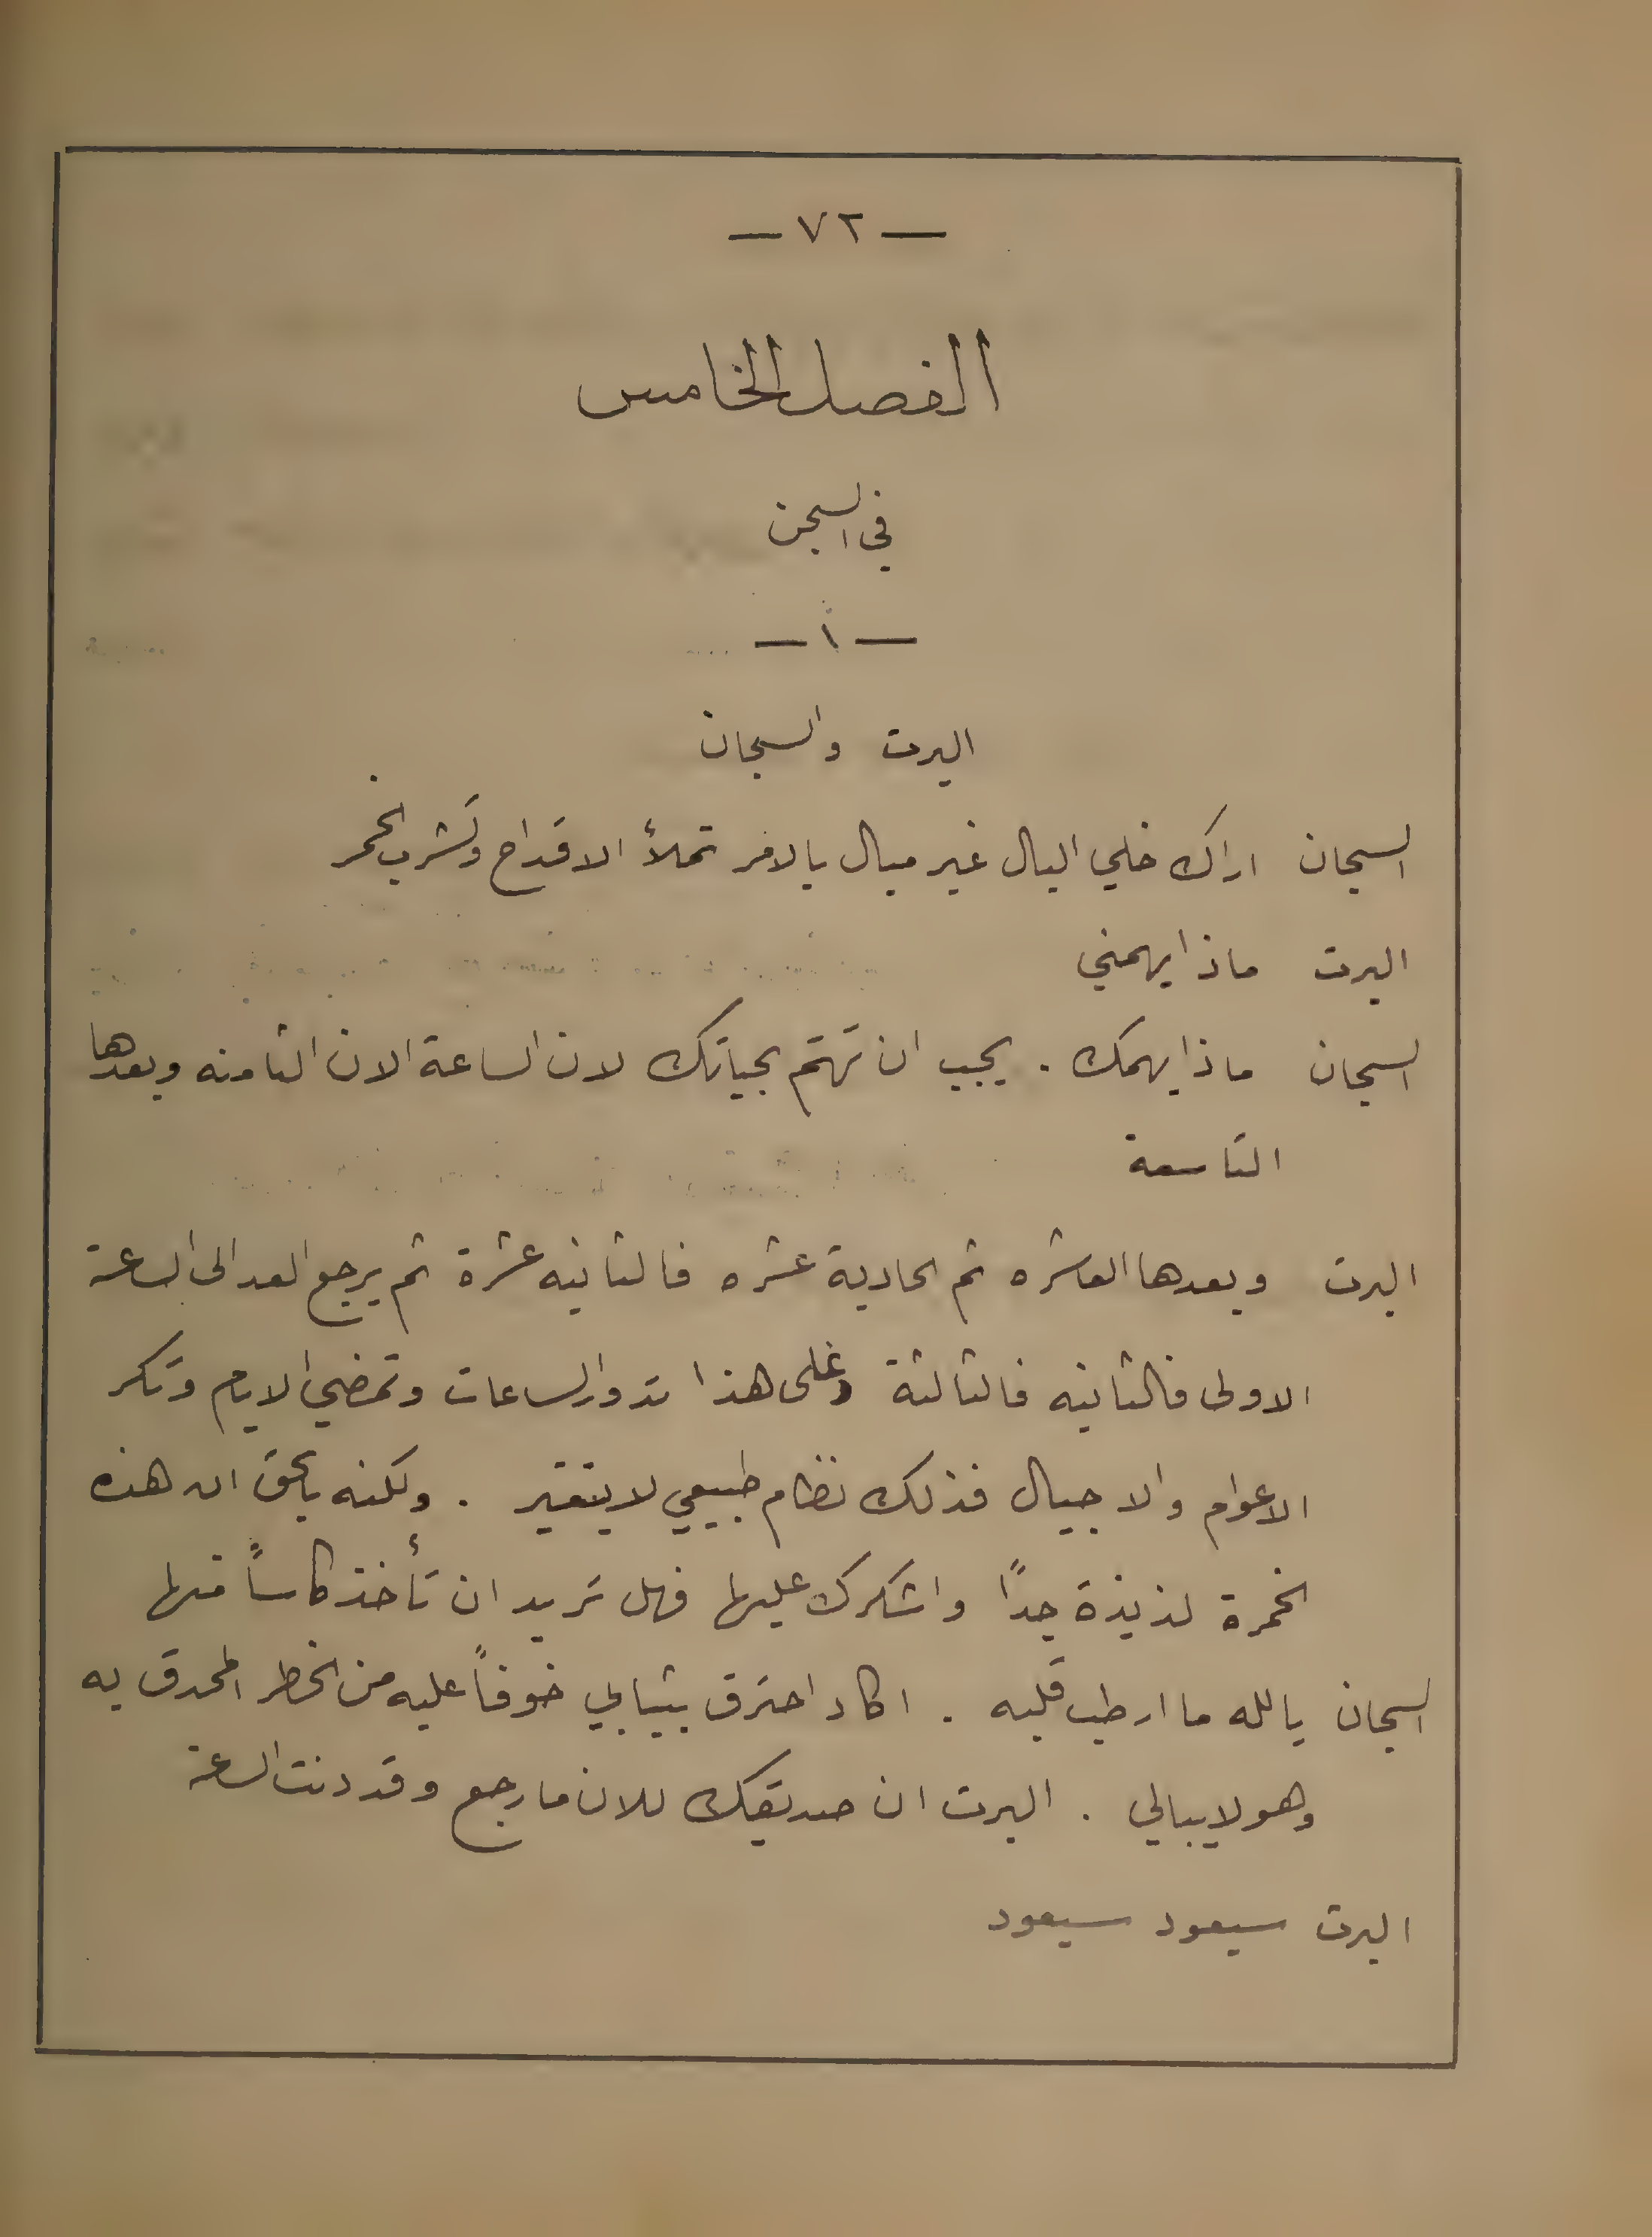 — ٧٢ —
الفصل الخامس
في السجن
— ١ —
البرت والسجان
السجان اراك خلي البال غير مبال بالامر تملأ الاقداح وتشرب الخمر
البرت ماذا يهمني
السجان ماذا يهمك . يجب ان تهتم بحياتك لان الساعة الان الثامنه وبعدها
التاسعة
البرت وبعدها العاشره ثم الحادية عشره فالثانيه عشرة ثم يرجع العد الى الساعة
الاولى فالثانيه فالثالثة وعلى هذا تدور الساعات وتمضي الايام وتكر
الاعوام والاجيال فذلك نظام طبيعي لا يتغير . ولكنه بالحق ان هذه
الخمرة لذيذة جدًا واشكرك عليها فهل تريد ان تأخذ كاساً منها
السجان يالله ما ارطب قلبه . اكاد احترق بثيابي خوفاً عليه من الخطر المحدق به
وهو لا يبالي . البرت ان صديقك للان ما رجع وقد دنت الساعة
البرت سيعود سيعود